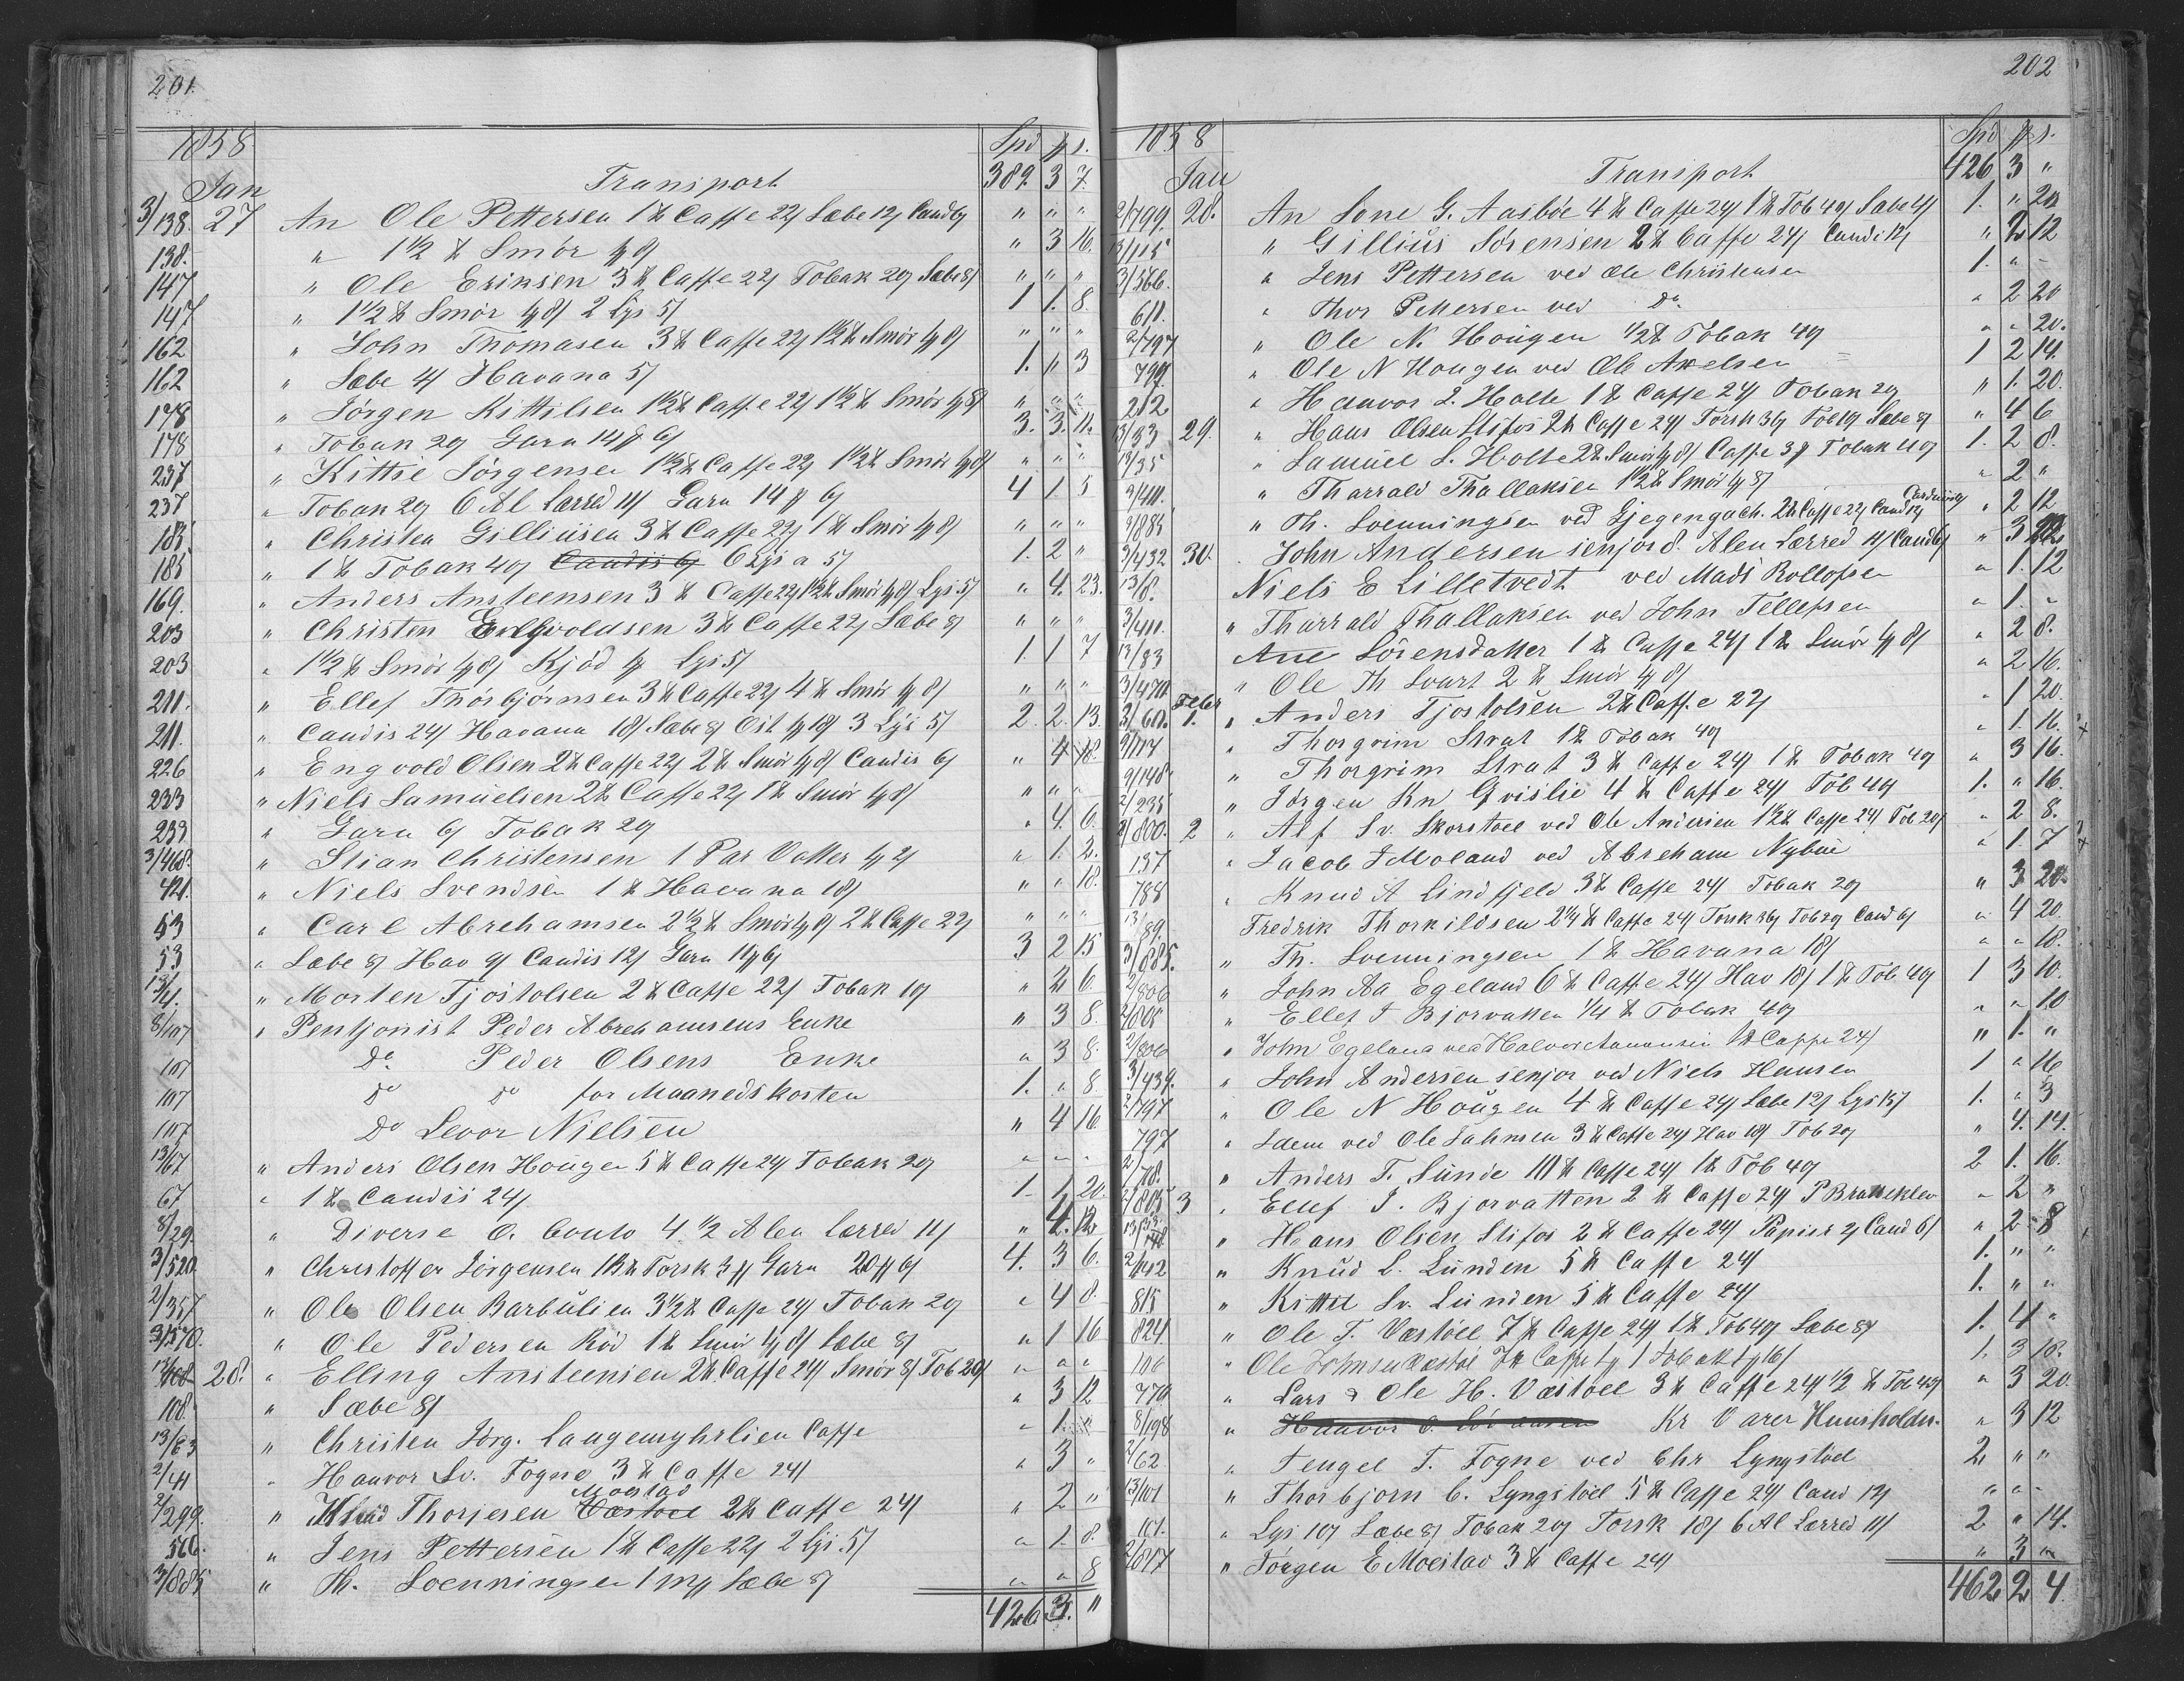 201.
1858 Spd # s.
Jan Transport 389. 3 7.
3/138. 27 An Ole Pettersen 1 ℔ Caffe 22/ Sæbe 12/ Cand 6/ " " "
138. " 1½ ℔ Smör 4/8/ " 3 16.
147 " Ole Eriksen 3 ℔ Caffe 22/ Tobak 20/ Sæbe 8/ " " "
147 " 1½ ℔ Smör 4/8/ 2 Lys 5/ 1 1. 8.
162 " John Thomasen 3 ℔ Caffe 22/ 1½ ℔ Smör 4/8/ " " "
162 " Sæbe 4/ Havana 5/ 1. " 3
178 " Jörgen Kittilsen 1½ ℔ Caffe 22/ 1½ ℔ Smör 4/8/ " " "
178 " Tobak 20/ Garn 14 # 6/ 3. 3. 11.
237 " Kittie Jörgensen 1½ ℔ Caffe 22/ 1½ ℔ Smör 4/8/ " " "
237 " Tobak 20/ 6 Al Lærred 11/ Garn 14 # 6/ 4 1 5
185 " Christen Gilliusen 3 ℔ Caffe 22/ 1 ℔ Smör 4/8/ " " "
185 " 1 ℔ Tobak 40/ Candis 6/ 6 Lys a 5/ 1. 2 "
169. " Anders Ansteensen 3 ℔ Caffe 22/ 1½ ℔ Smör 4/8/ Lys 5/ " 4. 23.
203 " Christen Engvoldsen 3 ℔ Caffe 22/ Sæbe 8/ " " "
203 " 1½ ℔ Smör 4/8/ Kjöd # Lys 5/ 1. 1 7
211. " Ellef Thorbjörnsen 3 ℔ Caffe 22/ 4 ℔ Smör 4/8/ " " "
211. " Candis 24/ Havana 18/ Sæbe 8/ Ost 4/18/ 3 Lys 5/ 2. 2. 13.
226 " Engvold Olsen 2 ℔ Caffe 22/ 2 ℔ Smör 4/8/ Candis 6/ " 4 18.
233 " Niels Samuelsen 2 ℔ Caffe 22/ 1 ℔ Smör 4/8/ " " "
233 " Garn 6/ Tobak 20/ " 4. 6.
3/468. " Stian Christensen 1 Par Votter 4/2/ " 1. 2.
421. " Niels Svendsen 1 ℔ Havana 18/ " " 18.
53 " Carl Abrehamsen 2½ ℔ Smör 4/8/ 2 ℔ Caffe 22/ " " "
53 " Sæbe 8/ Hav 9/ Candis 12/ Garn 11 # 6/ 3 2 15
13/4. " Morten Tjostolsen 2 ℔ Caffe 22/ Tobak 10/ " 2 6.
8/107 " Pentjonist Peder Abrehamsens Enke " 3 8.
107 Do Peder Olsens Enke " 3 8.
107 Do Do for Maanedskosten 1. " 8
107 Do Levor Nielsen " 4 16
13/67 " Anders Olsen Hougen 5 ℔ Caffe 24/ Tobak 20/ " " "
67 " 1 ℔ Candis 24/ 1. 1 20.
8/29. " Diverse O. Conto 4½ Alen Lærred 11/ " 4. 12
3/520. " Christoffer Jörgensen 18 ℔ Torsk 3 # Garn 20 # 6/ 4. 3 6.
2/357 " Ole Olsen Barbulien 3½ ℔ Caffe 24/ Tobak 20/ " 4 8.
3/570. " Ole Pedersen Röd 1 ℔ Smör 4/8/ Sæbe 8/ " 1 16
13/108 28. " Elling Ansteensen 2 ℔ Caffe 24/ Smör 8/ Tob 20/ " " "
108. " Sæbe 8/ " 3 12
13/63 " Christen Jörg. Langemyhrlien Caffe " 1. "
2/41 " Hauvor Sv. Fogne 3 ℔ Caffe 24/ " 3 "
Moestad
2/299. " Knud Thorjesen Væstoel 2 ℔ Caffe 24/ " 2 "
566. " Jens Pettersen 1 ℔ Caffe 22/ 2 Lys 5/ " 1. 8.
3/885 " Th. Soenningsen 1 # Sæbe 8/ " " 8
426 3. "
202
1858 Spd # s.
Jan Transport 426 3 "
2/799. 28. An Sone G. Aasböe 4 ℔ Caffe 24/ 1 ℔ Tob 40/ Sæbe 4/ 1. " 20
13/115 " Gillius Sörensen 2 ℔ Caffe 24/ Candi 12/ " 2 12
3/566. " Jens Pettersen ved Ole Christensen 1. " -
611. " Thor Pettersen ved Do " 2 20
2/797 " Ole N. Hougen ½ ℔ Tobak 40/ " " 20.
797. " Ole N Hougen ved Ole Axelsen 1 2 14.
212 " Hauvor S. Holte 1 ℔ Caffe 24/ Tobak 20/ " 1. 20.
13/33 29. " Hans Olsen Slifos 2 ℔ Caffe 24/ Torsk 36/ Tob 10/ Sæbe 8/ " 4 6
13/35 " Samuel S. Holte 2 ℔ Smör 4/8/ Caffe 3 # Tobak 40/ 1. 2 8.
3/411. " Tharrald Thallaksen 1½ ℔ Smör 4/8/ " 2 "
3/885 " Th. Soenningsen ved Gjegengach. 2 ℔ Caffe 22/ Cand 12/ " 2 12
3/432 30. " John Andersen senjor 8. Alen Lærred 11/ Cand 6/ " 3 22
13/8. Niels E Lilletvedt ved Mads Rollofsen " 1. 12
3/411. " Tharrald Thallaksen ved John Tellefsen " 1. -
13/83 Ane Sörensdatter 1 ℔ Caffe 24/ 1 ℔ Smör 4/8/ " 2 8.
3/470. " Ole Th Svart 2 ℔ Smör 4/8/ " 2 16.
Febr
3/611. 1. " Anders Tjostolsen 2 ℔ Caffe 22/ " 1 20.
9/174 " Thorgrim Strat 1 ℔ Tobak 40/ " 1. 16.
9/148. " Thorgrim Strat 3 ℔ Caffe 24/ 1 ℔ Tobak 40/ " 3 16.
2/235 " Jörgen Kn Grislie 4 ℔ Caffe 24/ Tob 40/ 1. " 16.
2/800. 2 " Alf Sv. Skorstoel ved Ole Andersen 1½ ℔ Caffe 24/ Tob 20/ " 2 8.
137 " Jacob J Moland ved Abreham Nybue " 1. 7
788 " Knud A Lindfjeld 3 ℔ Caffe 24/ Tobak 20/ " 3 20.
13/89. Fredrik Thorkildsen 2¼ ℔ Caffe 24/ Torsk 36/ Tob 20/ Cand 6/ " 4 20.
3/885. " Th. Soenningsen 1 ℔ Havana 18/ " " 18.
2/806 " John Aa Egeland 6 ℔ Caffe 24/ Hav 18/ 1 ℔ Tob 40/ 1 3 10.
2/805 " Ellef J Bjorvatten ¼ ℔ Tobak 40/ " " 10
2/806 " John Egeland ved Halvor Aanonsen 1 ℔ Caffe 24/ " 1. "
3/439. " John Andersen senjor ved Niels Hansen 1 " 16
2/797 " Ole N Hougen 4 ℔ Caffe 24/ Sæbe 12/ Lys 15/ 1. " 3
797 " Idem ved Ole Salmsen 3 ℔ Caffe 24/ Hav 18/ Tob 20/ " 4. 14.
2/78. " Anders T. Sunde 10 ℔ Caffe 24/ 1 ℔ Tob 40/ 2 1. 16.
2/805 3 " Ellef J. Bjorvatten 2 ℔ Caffe 24/ P Bratteklev " 2 "
13/33 " Hans Olsen Slifos 2 ℔ Caffe 24/ Papiir 2/ Cand 6/ " 2 8
2/142 " Knud L. Lunden 5 ℔ Caffe 24/ 1. " "
815 " Kittil Sv. Lunden 5 ℔ Caffe 24/ 1. " "
824 " Ole T. Væstöel 7 ℔ Caffe 24/ 1 ℔ Tob 40/ Sæbe 8/ 1. 4 "
106 " Ole Johnsen Væstöl 7 ℔ Caffe 1 # 1 Tobak 1 # 16/ 1. 3 18.
770 " Lars & Ole H. Væstoel 3 ℔ Caffe 24/ ½ ℔ Tob 40/ " 3 20.
8/198 " Kr Varer Huusholdn. " 3 12
2/62 " Tengel T. Fogne ved Chr Lyngstoel 2 " "
13/101 " Thorbjorn C. Lyngstoel 5 ℔ Caffe 24/ Cand 12/ " " -
101. " Lys 10/ Sæbe 8/ Tobak 20/ Torsk 18/ 6 Al Lærred 11/ 2 " 14.
2/817 " Jörgen E Moestad 3 ℔ Caffe 24/ " 3 "
462 2 4